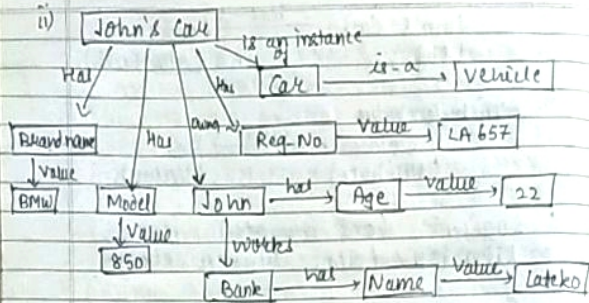 ii) John's Car
is an instance
of
Has
Has
Car
is-a
Vehicle
Brand name
Has
Owns
Reg-No.
Value
LA 657
Value
BMW
Model
John
has
Age
Value
22
Value
850
Works
Bank
has
Name
Value
Lateko